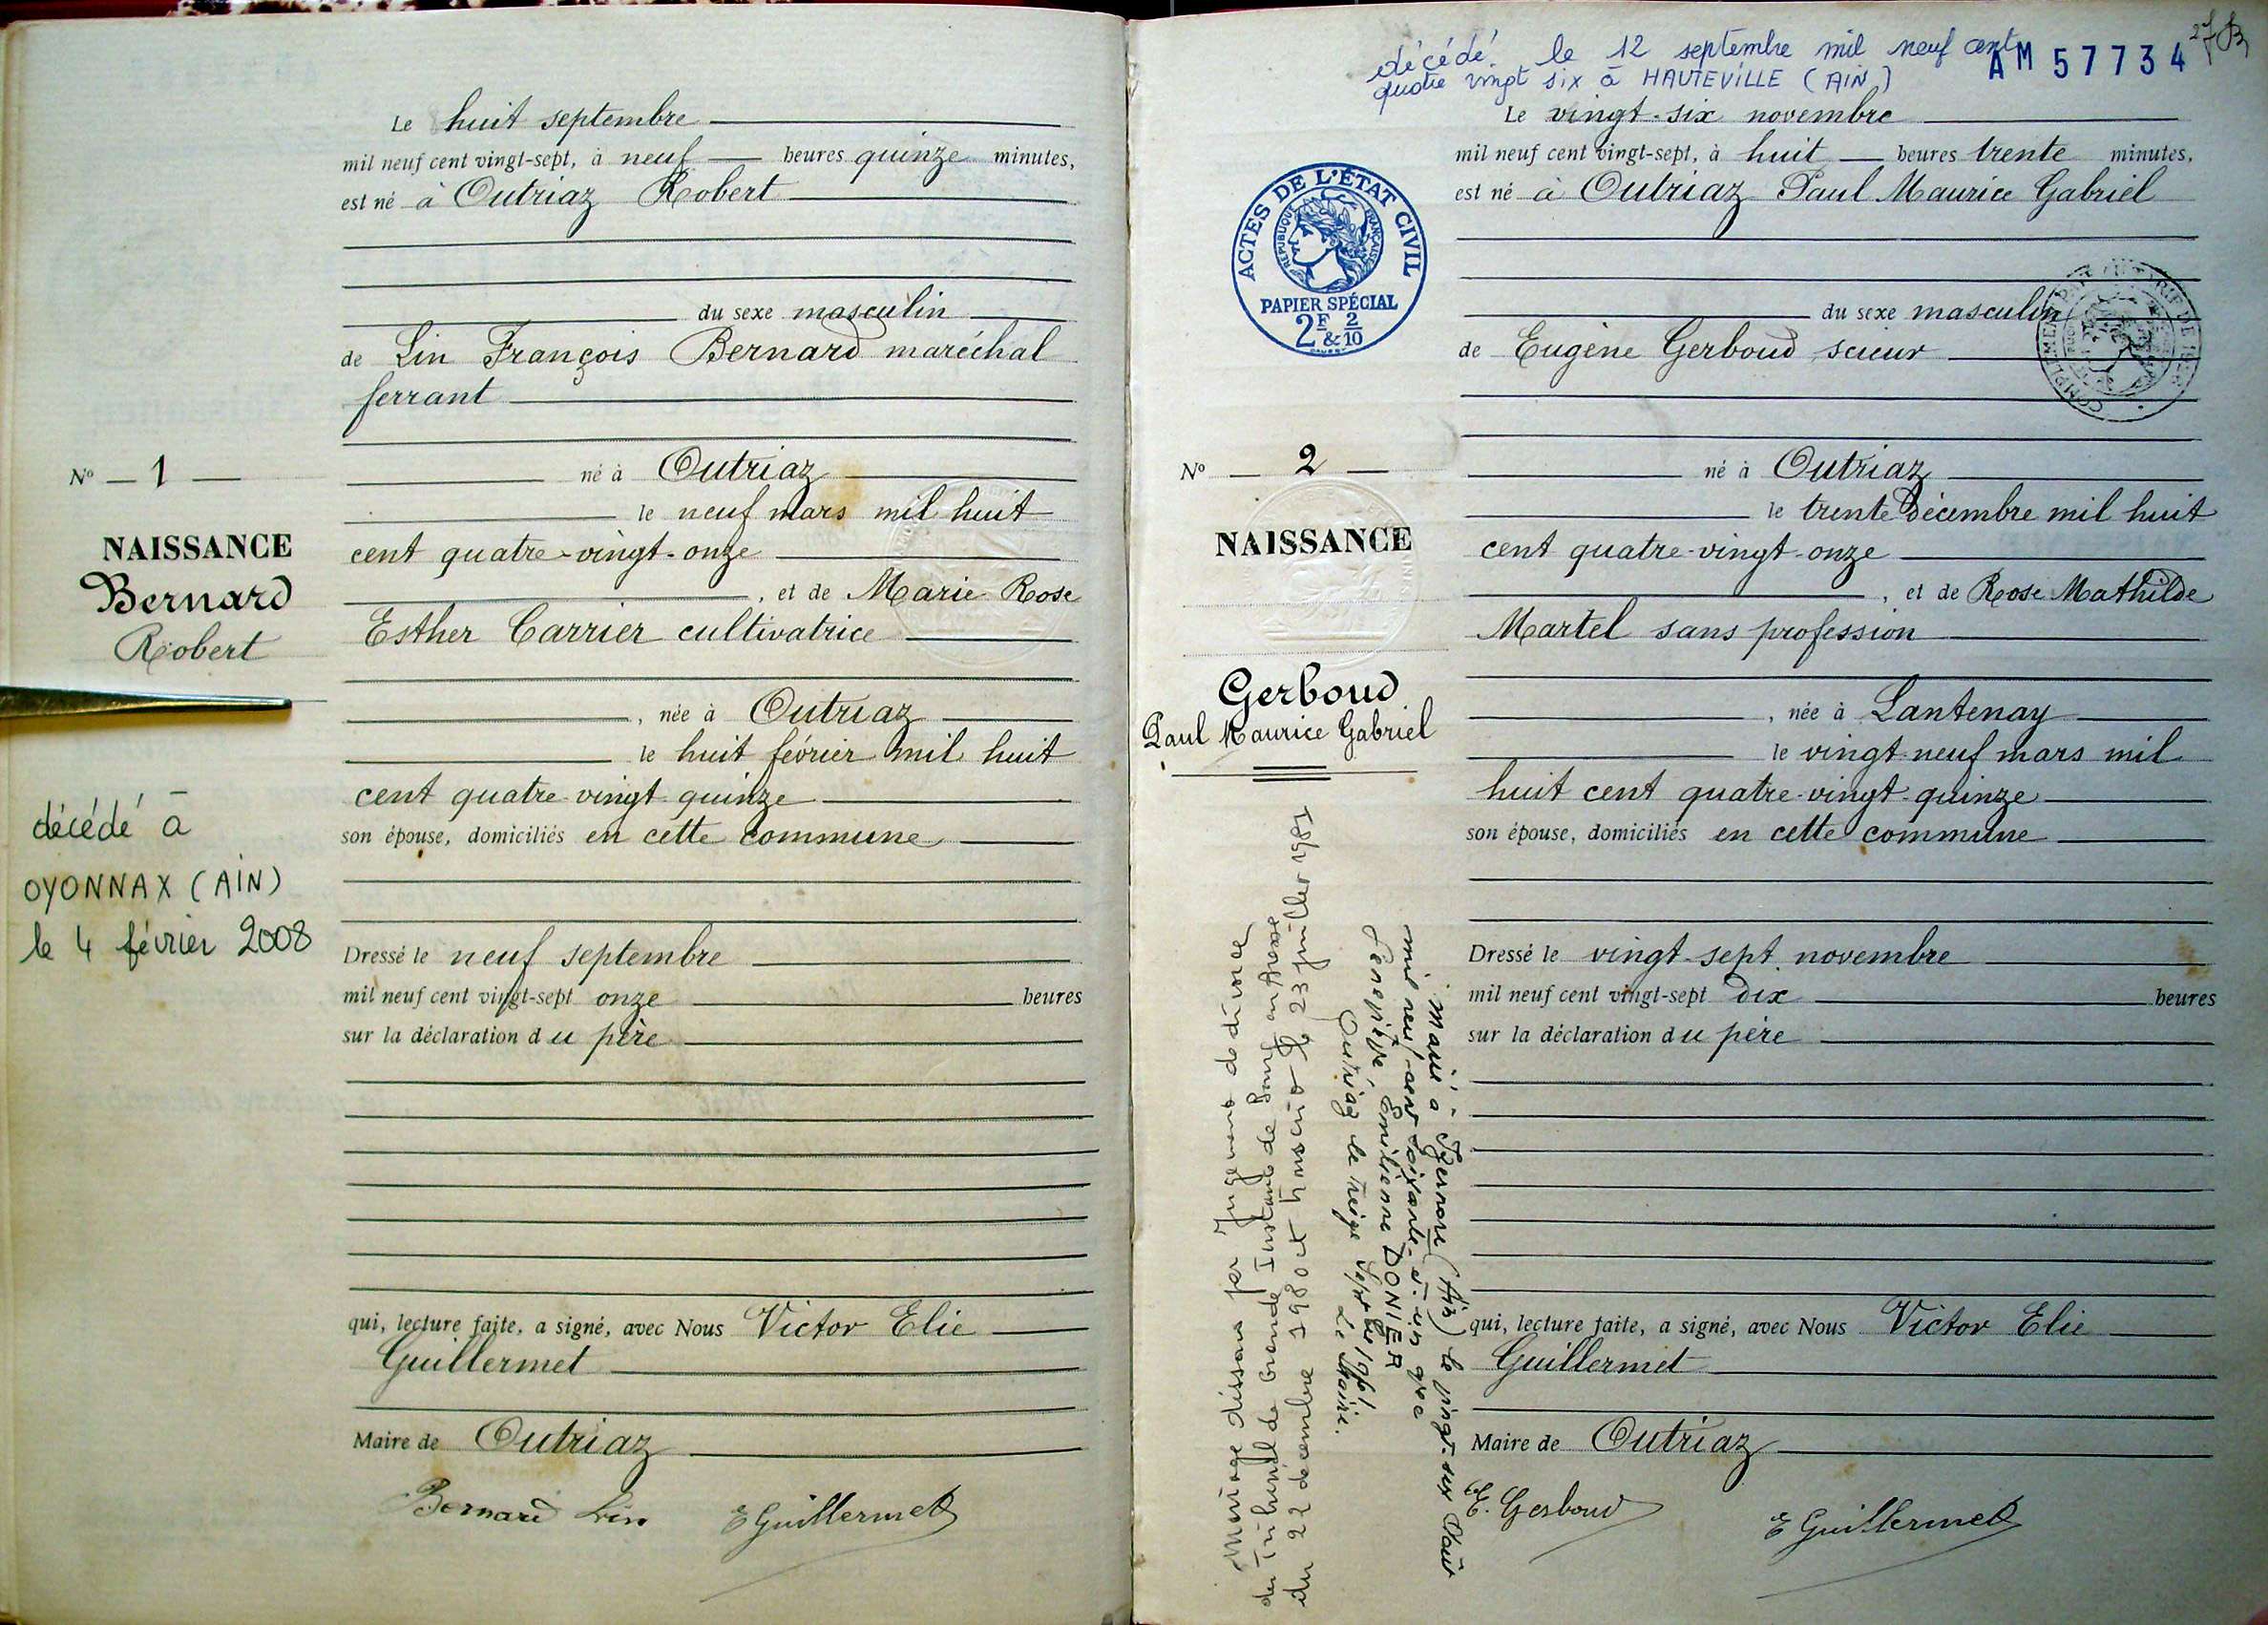 Le huit septembre
mil neuf cent vingt-sept, à neuf heures quinze minutes,
est né à Outriaz Robert
du sexe masculin
de Lin François Bernard maréchal
ferrant
né à Outriaz
le neuf mars mil huit
cent quatre-vingt-onze
, et de Marie Rose
Esther Carrier cultivatrice
, née à Outriaz
le huit février mil huit
cent quatre-vingt-quinze
son épouse, domiciliés en cette commune
Dressé le neuf septembre
mil neuf cent vingt-sept onze heures
sur la déclaration du père
qui, lecture faite, a signé, avec Nous Victor Elie
Guillermet
Maire de Outriaz
Bernard Lin E Guillermet
N° 1
NAISSANCE
Bernard
Robert
décédé à
OYONNAX (AIN)
le 4 février 2008
décédé le 12 septembre mil neuf cent
quatre vingt six à HAUTEVILLE (AIN)
AM 57734
Le vingt-six novembre
mil neuf cent vingt-sept, à huit heures trente minutes,
est né à Outriaz Paul Maurice Gabriel
du sexe masculin
de Eugène Gerboud scieur
né à Outriaz
le trente décembre mil huit
cent quatre-vingt-onze
, et de Rose Mathilde
Martel sans profession
, née à Lantenay
le vingt-neuf mars mil
huit cent quatre-vingt-quinze
son épouse, domiciliés en cette commune
Dressé le vingt-sept novembre
mil neuf cent vingt-sept dix heures
sur la déclaration du père
qui, lecture faite, a signé, avec Nous Victor Elie
Guillermet
Maire de Outriaz
E. Gerboud E Guillermet
ACTES DE L'ÉTAT CIVIL
RÉPUBLIQUE FRANÇAISE
PAPIER SPÉCIAL
2F & 2/10
N° 2
NAISSANCE
Gerboud
Paul Maurice Gabriel
Marié à Izernore (Ain) le vingt-six Août
mil neuf-cent soixante-et-un avec
Emilienne DONIER
Outriaz le treize Septbre 1961
Le Maire.
Mariage dissous par Jugement de divorce
du Tribunal de Grande Instance de Bourg en Bresse
du 22 décembre 1980 et transcrit le 23 juillet 1981